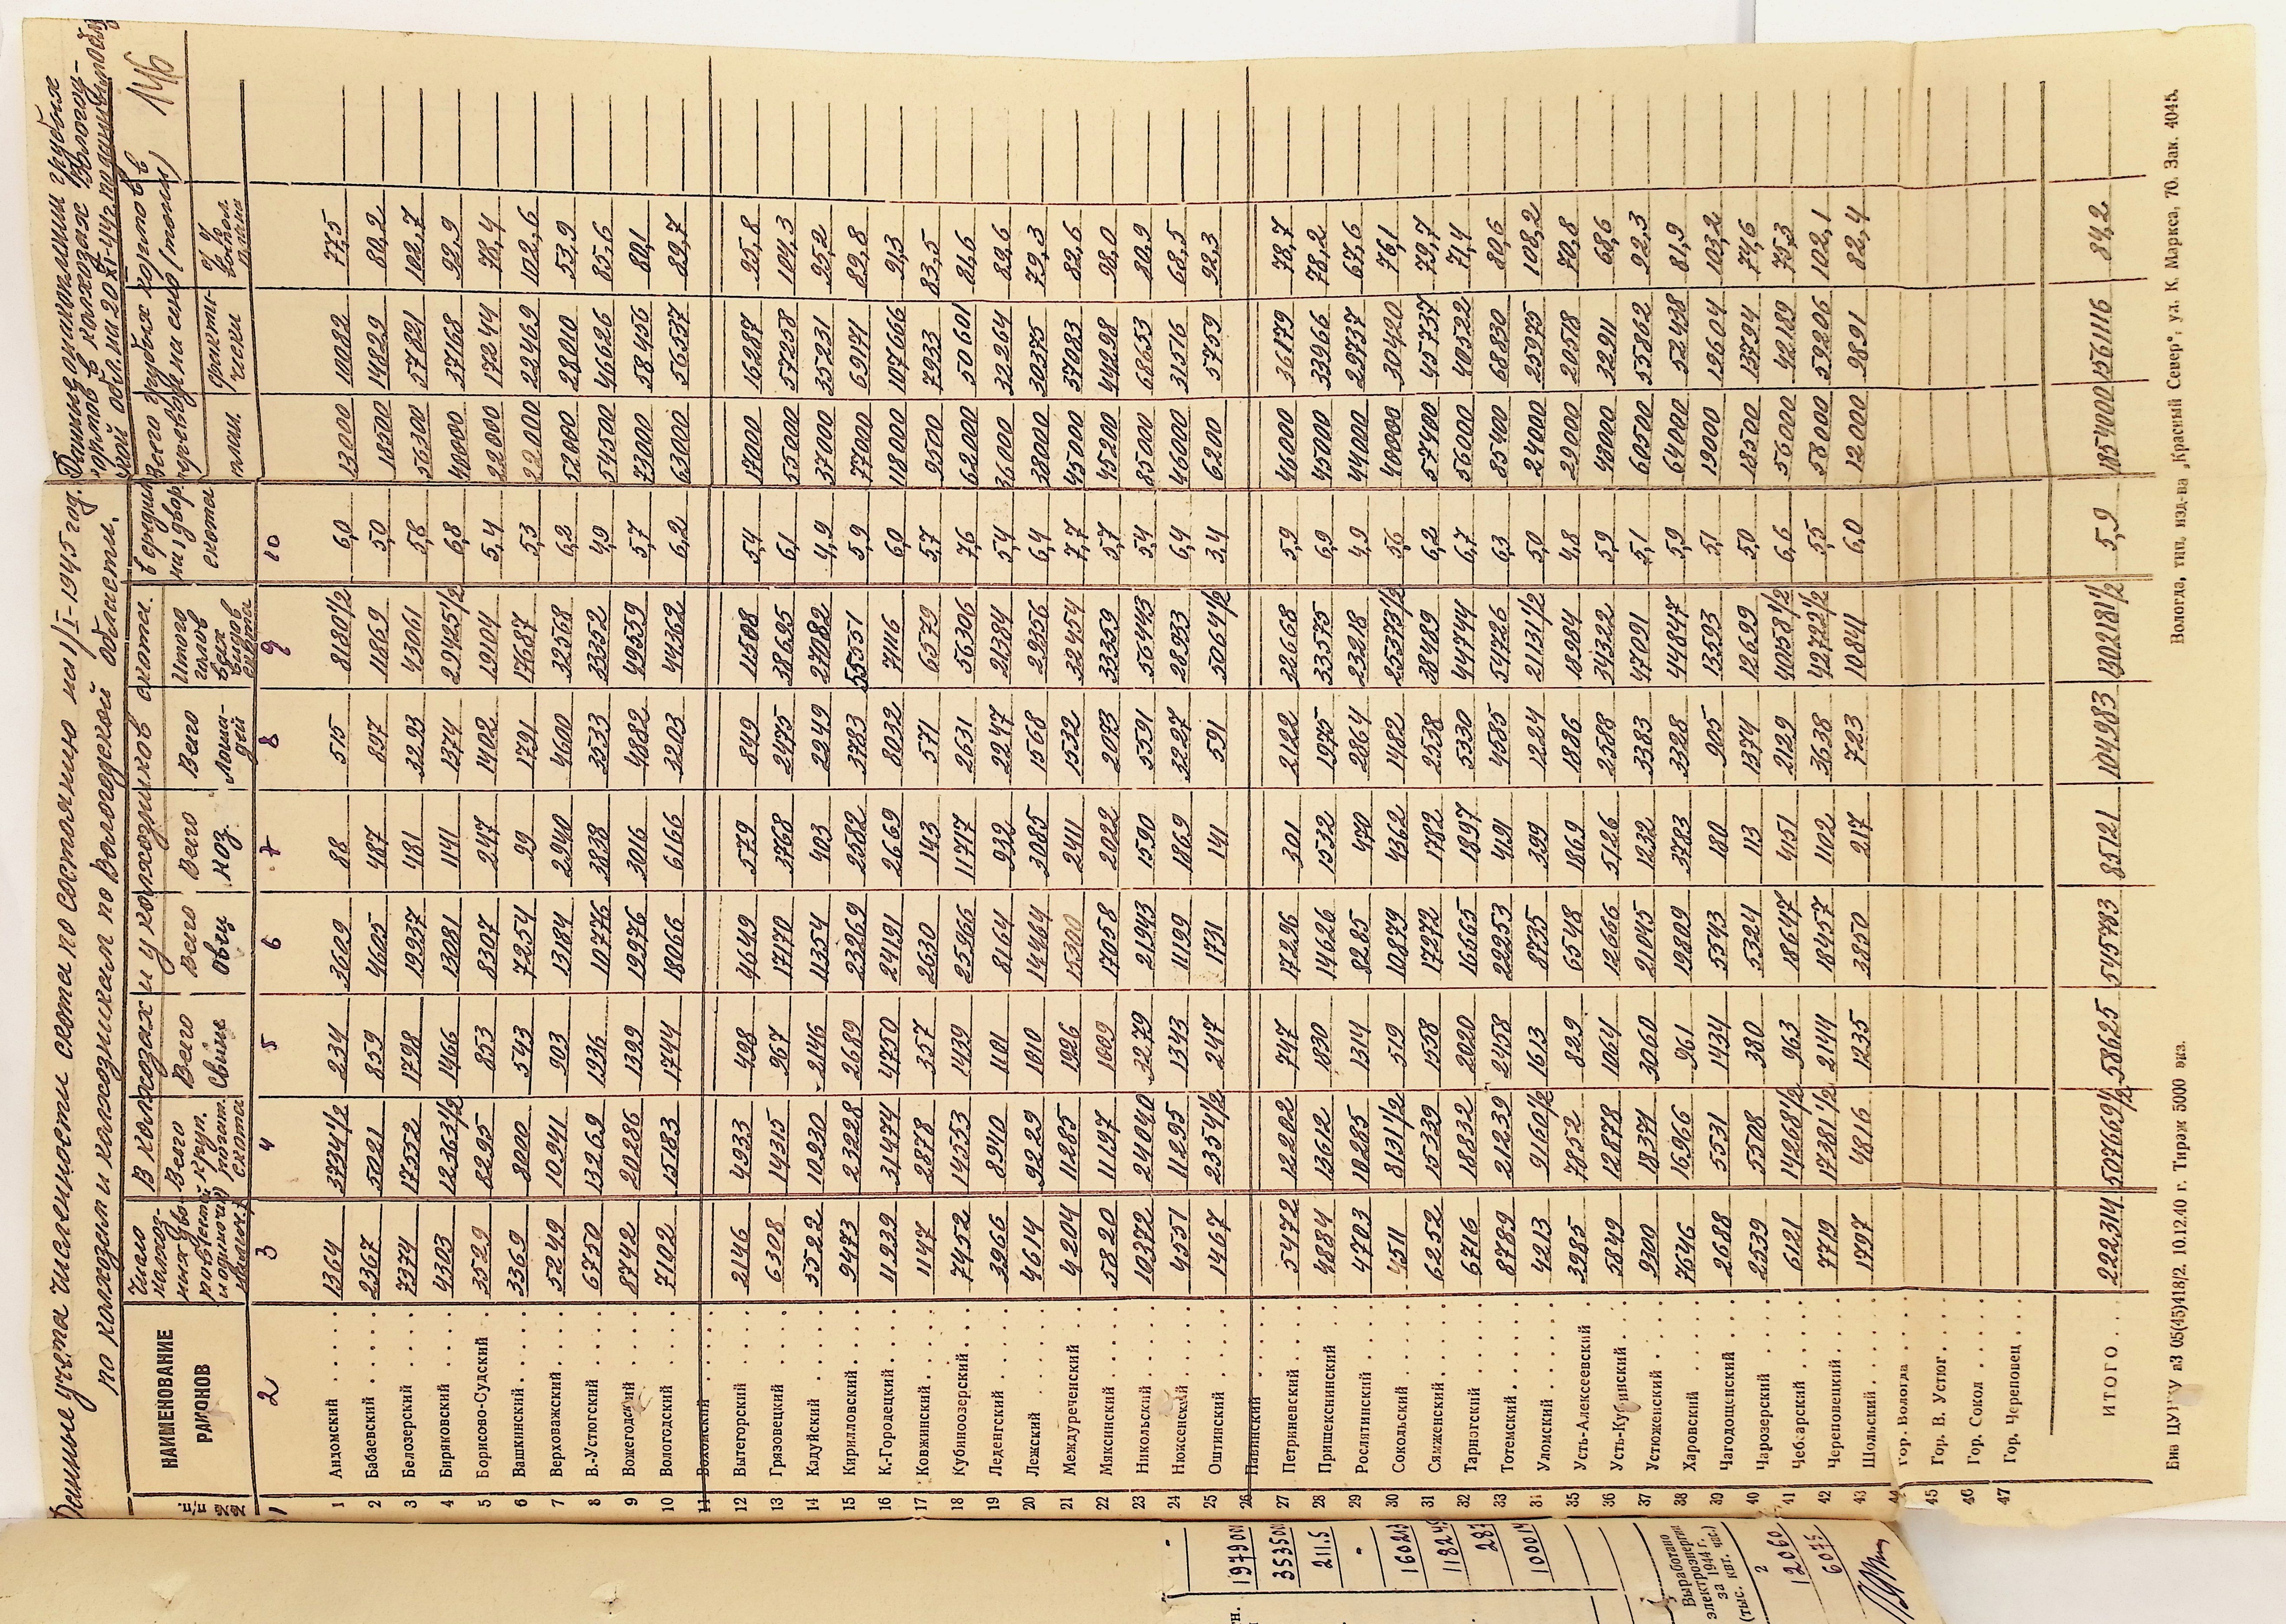 Данные учета численности скота по состоянию на 1/I-1945 год.
по колхозам и колхозникам по Вологодской области.
Данные о наличии грубых
кормов в колхозах Вологод-
ской обл. на 20/XI-44г.
146
№№ п/п.
НАИМЕНОВАНИЕ РАЙОНОВ
Число
В колхозах и у колхозников скота.
Всего круп. рогат. скота
Всего Свин.
Всего Овец
Всего Коз.
Всего Лошадей
Итого голов всех видов скота
В среднем на 1 двор скота
Всего грубых кормов в переводе на сено (тонн)
план.
фактически
% выпол. плана
1 2 3 4 5 6 7 8 9 10
1 Андомский 1364 3734 1/2 234 3609 88 515 8180 1/2 6,0 13000 10082 77,5
2 Бабаевский 2367 5021 859 4605 487 897 11869 5,0 18500 14829 80,2
3 Белозерский 7374 17552 1798 19937 481 3293 43061 5,8 56300 57821 102,7
4 Биряковский 4303 12363 1/2 1466 13081 1141 1374 29425 1/2 6,8 40000 37168 92,9
5 Борисово-Судский 3529 8295 853 8307 247 1402 19104 5,4 22000 17244 78,4
6 Вашкинский 3369 8000 543 7254 99 1791 17687 5,3 22000 22469 102,6
7 Верховажский 5249 10941 903 13184 2940 4600 32568 6,2 52000 28010 53,9
8 В.-Устюгский 6750 13269 1936 10776 3838 3533 33352 4,9 54500 46626 85,6
9 Вожегодский 8742 20286 1399 19976 3016 4882 49559 5,7 73000 58456 80,1
10 Вологодский 7102 15183 1744 18066 6166 3203 44362 6,2 63000 56537 89,7
11 Вохомский
12 Вытегорский 2146 4933 498 4649 579 849 11508 5,4 17000 16287 95,8
13 Грязовецкий 6308 14315 967 17170 3768 2475 38695 6,1 55000 57258 104,3
14 Кадуйский 5522 10930 2146 11354 403 2249 27082 4,9 37000 35231 95,2
15 Кирилловский 9473 23228 2689 23269 2582 3783 55551 5,9 77000 69171 89,8
16 К.-Городецкий 11939 31474 4750 24191 2669 8032 71116 6,0 118000 107666 91,3
17 Ковжинский 1147 2878 357 2630 143 571 6579 5,7 9500 7933 83,5
18 Кубиноозерский 7452 14553 1439 25966 11717 2631 56306 7,6 62000 50601 81,6
19 Леденгский 3966 8940 1101 8164 932 2247 21384 5,4 36000 32264 89,6
20 Лежский 4614 9229 1010 14464 3085 1568 29356 6,4 38000 30375 79,3
21 Междуреченский 4204 11285 1926 15300 2411 1532 32454 7,7 45000 37083 82,6
22 Мяксинский 5820 11197 1009 17058 2022 2073 33359 5,7 45200 44298 98,0
23 Никольский 10372 24040 3279 21943 1590 5591 56443 5,4 85000 68653 80,9
24 Нюксенский 4551 11295 1343 11199 1869 3227 28933 6,4 46000 31516 68,5
25 Оштинский 1467 2354 1/2 247 1731 141 591 5064 1/2 3,4 6200 5759 92,3
26 Павинский
27 Петриневский 5472 12202 747 17296 301 2122 32668 5,9 46000 36179 78,7
28 Пришекснинский 4884 13612 1830 14626 1532 1975 33575 6,9 45000 33966 78,2
29 Рослятинский 4703 10285 1314 8285 470 2864 23218 4,9 44000 29737 67,6
30 Сокольский 4511 8131 1/2 519 10879 4362 1482 25373 1/2 5,6 40000 30420 76,1
31 Сямженский 6252 15339 1558 17272 1782 2538 38489 6,2 57400 45737 79,7
32 Тарногский 6716 18832 2020 16665 1897 5330 44744 6,7 56000 40522 71,4
33 Тотемский 8789 21239 2458 22253 4191 4585 54726 6,3 85400 68830 80,6
34 Уломский 4213 9160 1/2 1613 8735 399 1224 21131 1/2 5,0 24000 25975 108,2
35 Усть-Алексеевский 3985 7852 829 6548 1869 1886 18984 4,8 29000 20518 70,8
36 Усть-Кубинский 5849 12878 1064 12666 5126 2588 34322 5,9 48000 32911 68,6
37 Устюженский 9300 18371 3060 21045 1232 3383 47091 5,1 60500 55862 92,3
38 Харовский 7646 16966 961 19809 3783 3328 44847 5,9 64000 52438 81,9
39 Чагодощенский 2688 5531 1434 5543 180 905 13593 5,1 19000 19604 103,2
40 Чарозерский 2539 5508 380 5324 113 1374 12699 5,0 18500 13794 74,6
41 Чебсарский 6121 14268 1/2 963 18647 4151 2129 40158 1/2 6,6 56000 42189 75,3
42 Череповецкий 7719 17381 1/2 2144 18457 1102 3638 42722 1/2 5,5 58000 59206 102,1
43 Шольский 1797 4816 1235 3850 217 723 10841 6,0 12000 9891 82,4
44 Гор. Вологда
45 Гор. В. Устюг
46 Гор. Сокол
47 Гор. Череповец
ИТОГО 222314 507669 1/2 58625 545783 85121 104983 1302181 1/2 5,9 1854000 1561116 84,2
05(45)418/2. 10.12.40 г. Тираж 5000 экз.
Вологда, тип. изд-ва „Красный Север“, ул. К. Маркса, 70. Зак. 4045.
Выработано электроэнергии за 1944 г. (тыс. квт. час.)
2
12060